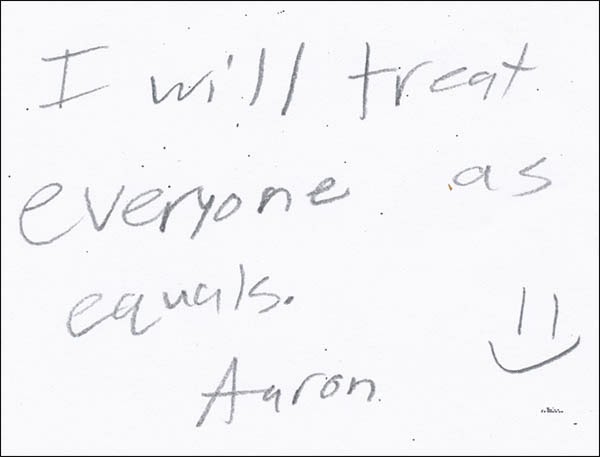 I will treat
everyone as
equals.
Aaron